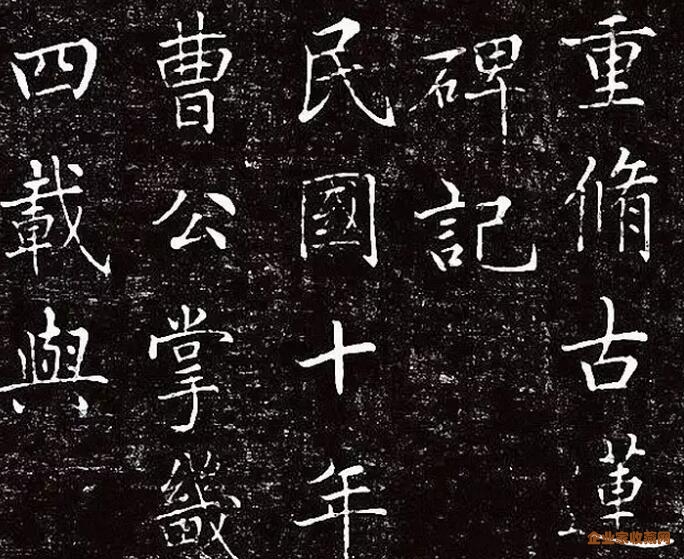 重脩古蓮
碑記
民國十年
曹公掌畿
四載與
企业家收藏网